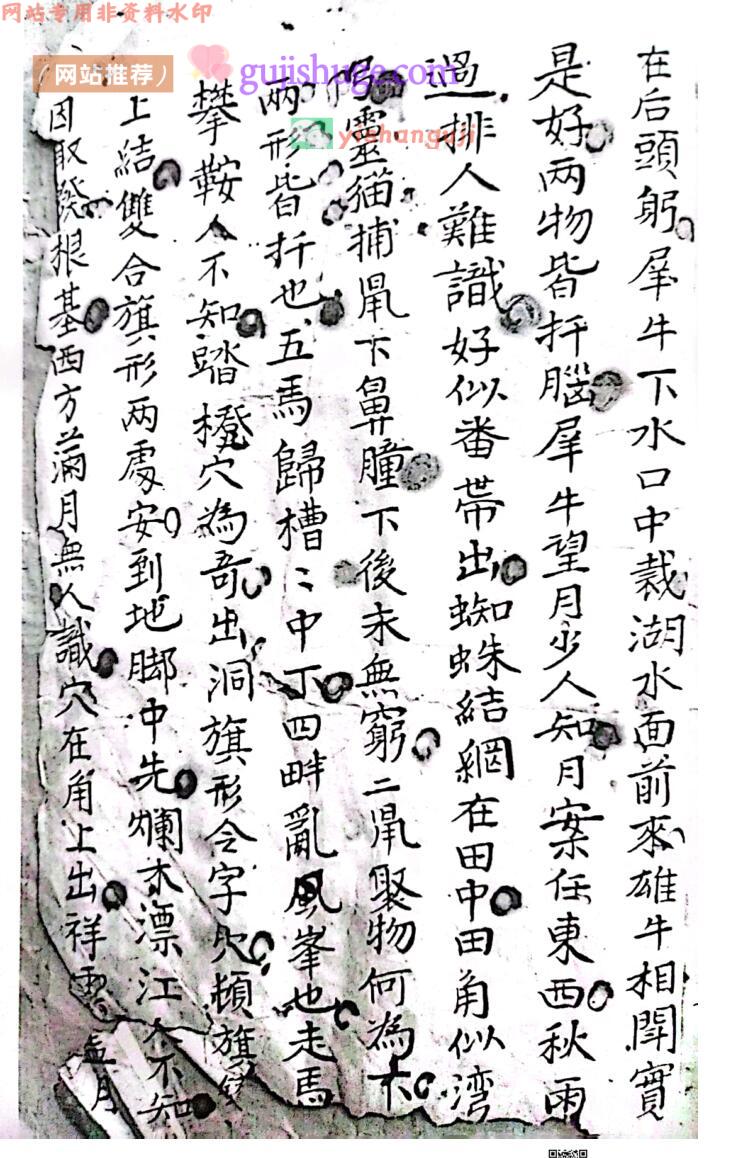 网站专用非资料水印
(网站推荐)
gujishuge.com
yishanguji
在后頭躬犀牛下水口中裁湖水面前來雄牛相閗實
是好两物皆扦腦犀牛望月少人知月案任東西秋雨
過排人難識好似番帶出蜘蛛結網在田中田角似湾
靈猫捕鼡下鼻瞳下後未無窮二鼡聚物何為
两形皆扦也五馬歸槽〻中丁四畔亂風峯也走馬
攀鞍人不知踏櫈穴為奇出洞旗形令字欠頓旗
上結雙合旗形两處安到地脚中先爛木漂江人不知
因取發根基西方滿月無人識穴在角上出祥雲孟月